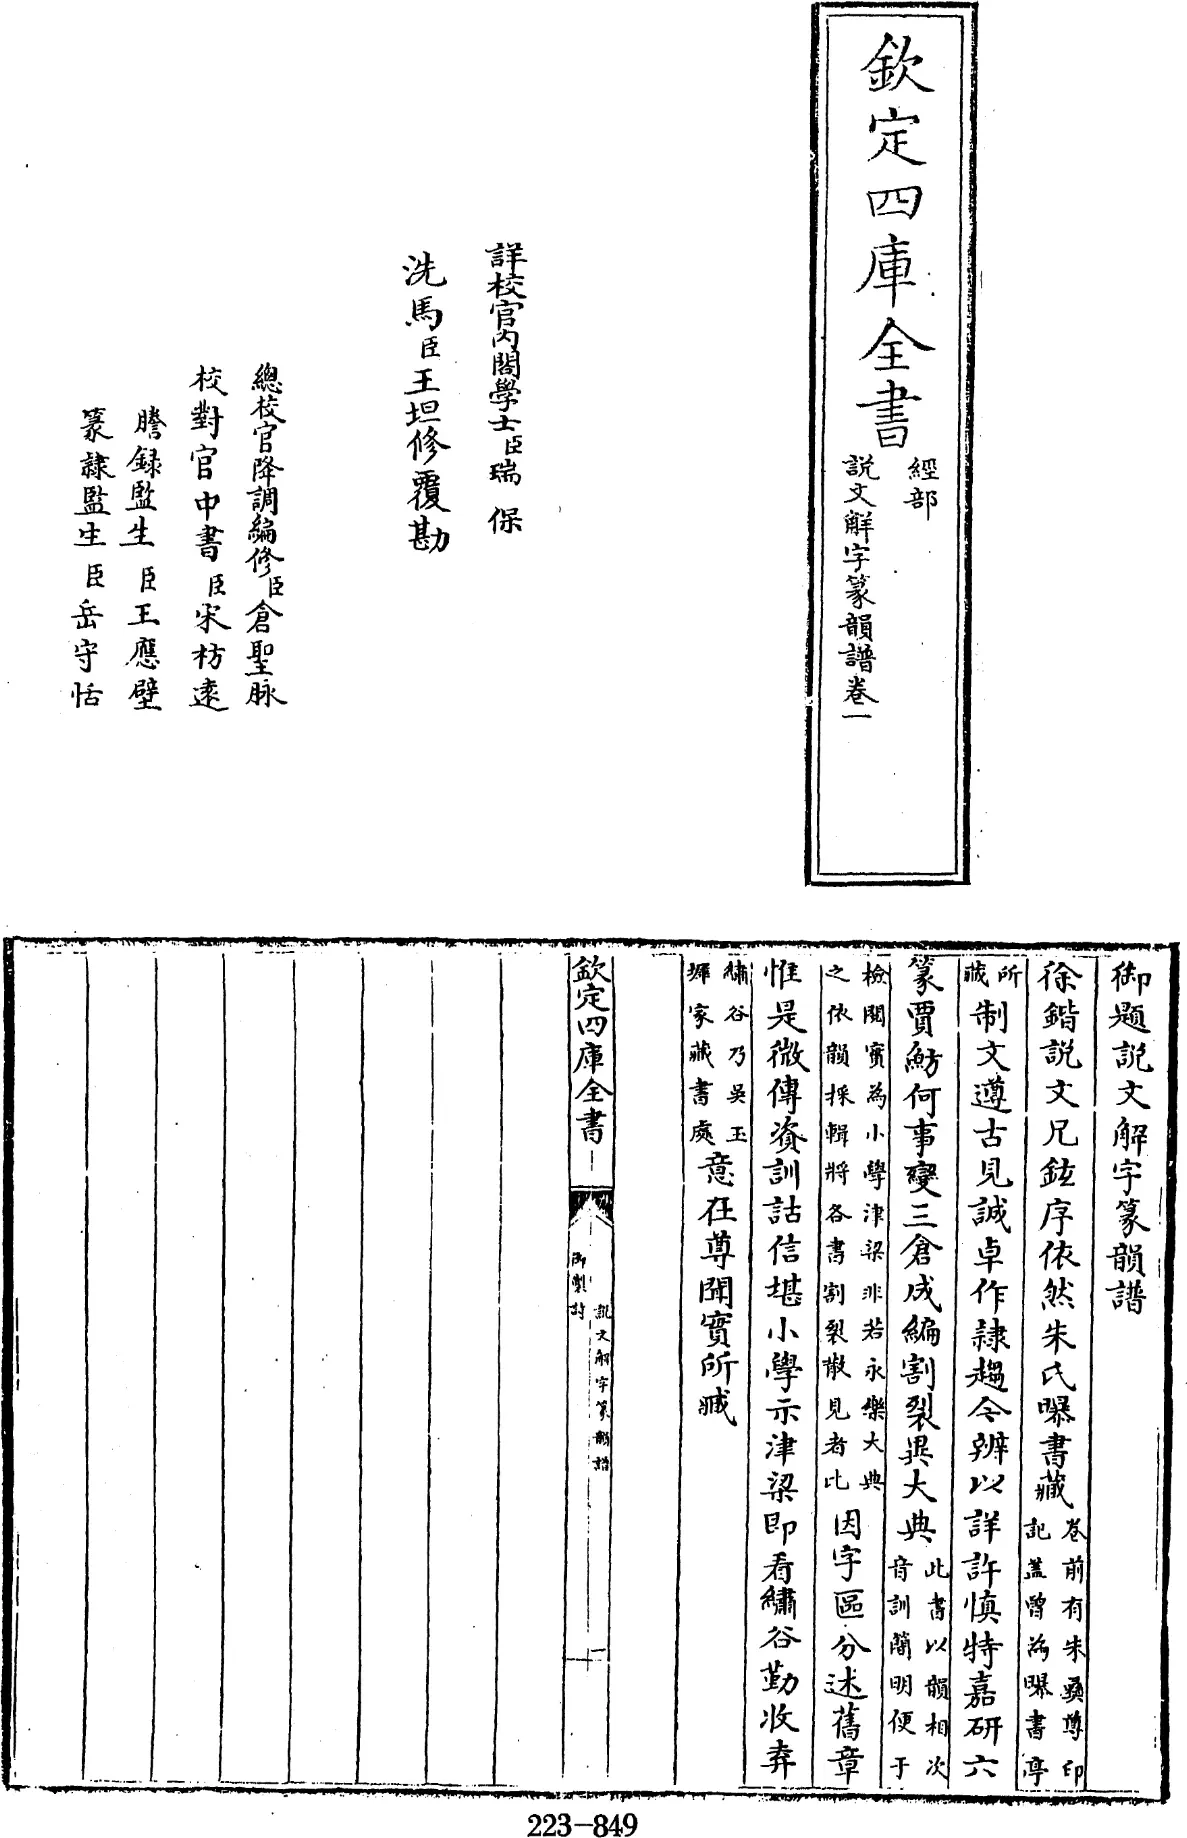 欽定四庫全書
經部
說文解字篆韻譜卷一
詳校官內閣學士臣瑞保
洗馬臣王坦修覆勘
總校官降調編修臣倉聖脉
校對官中書臣宋枋遠
謄錄監生臣王應壁
篆隷監生臣岳守恬
御題說文解字篆韻譜
徐鍇說文兄鉉序依然朱氏曝書藏卷前有朱彝尊印記蓋曾為曝書亭
所藏制文遵古見誠卓作隷趨今辨以詳許慎特嘉研六
篆賈魴何事變三倉成編割裂異大典此書以韻相次音訓簡明便于
檢閱實為小學津梁非若永樂大典之依韻採輯將各書割裂散見者比因字區分述舊章
惟是微傳資訓詁信堪小學示津梁即看繡谷勤收弆
繡谷乃吳玉墀家藏書處意在尊聞實所臧
欽定四庫全書
御製詩
說文解字篆韻譜
一
223-849